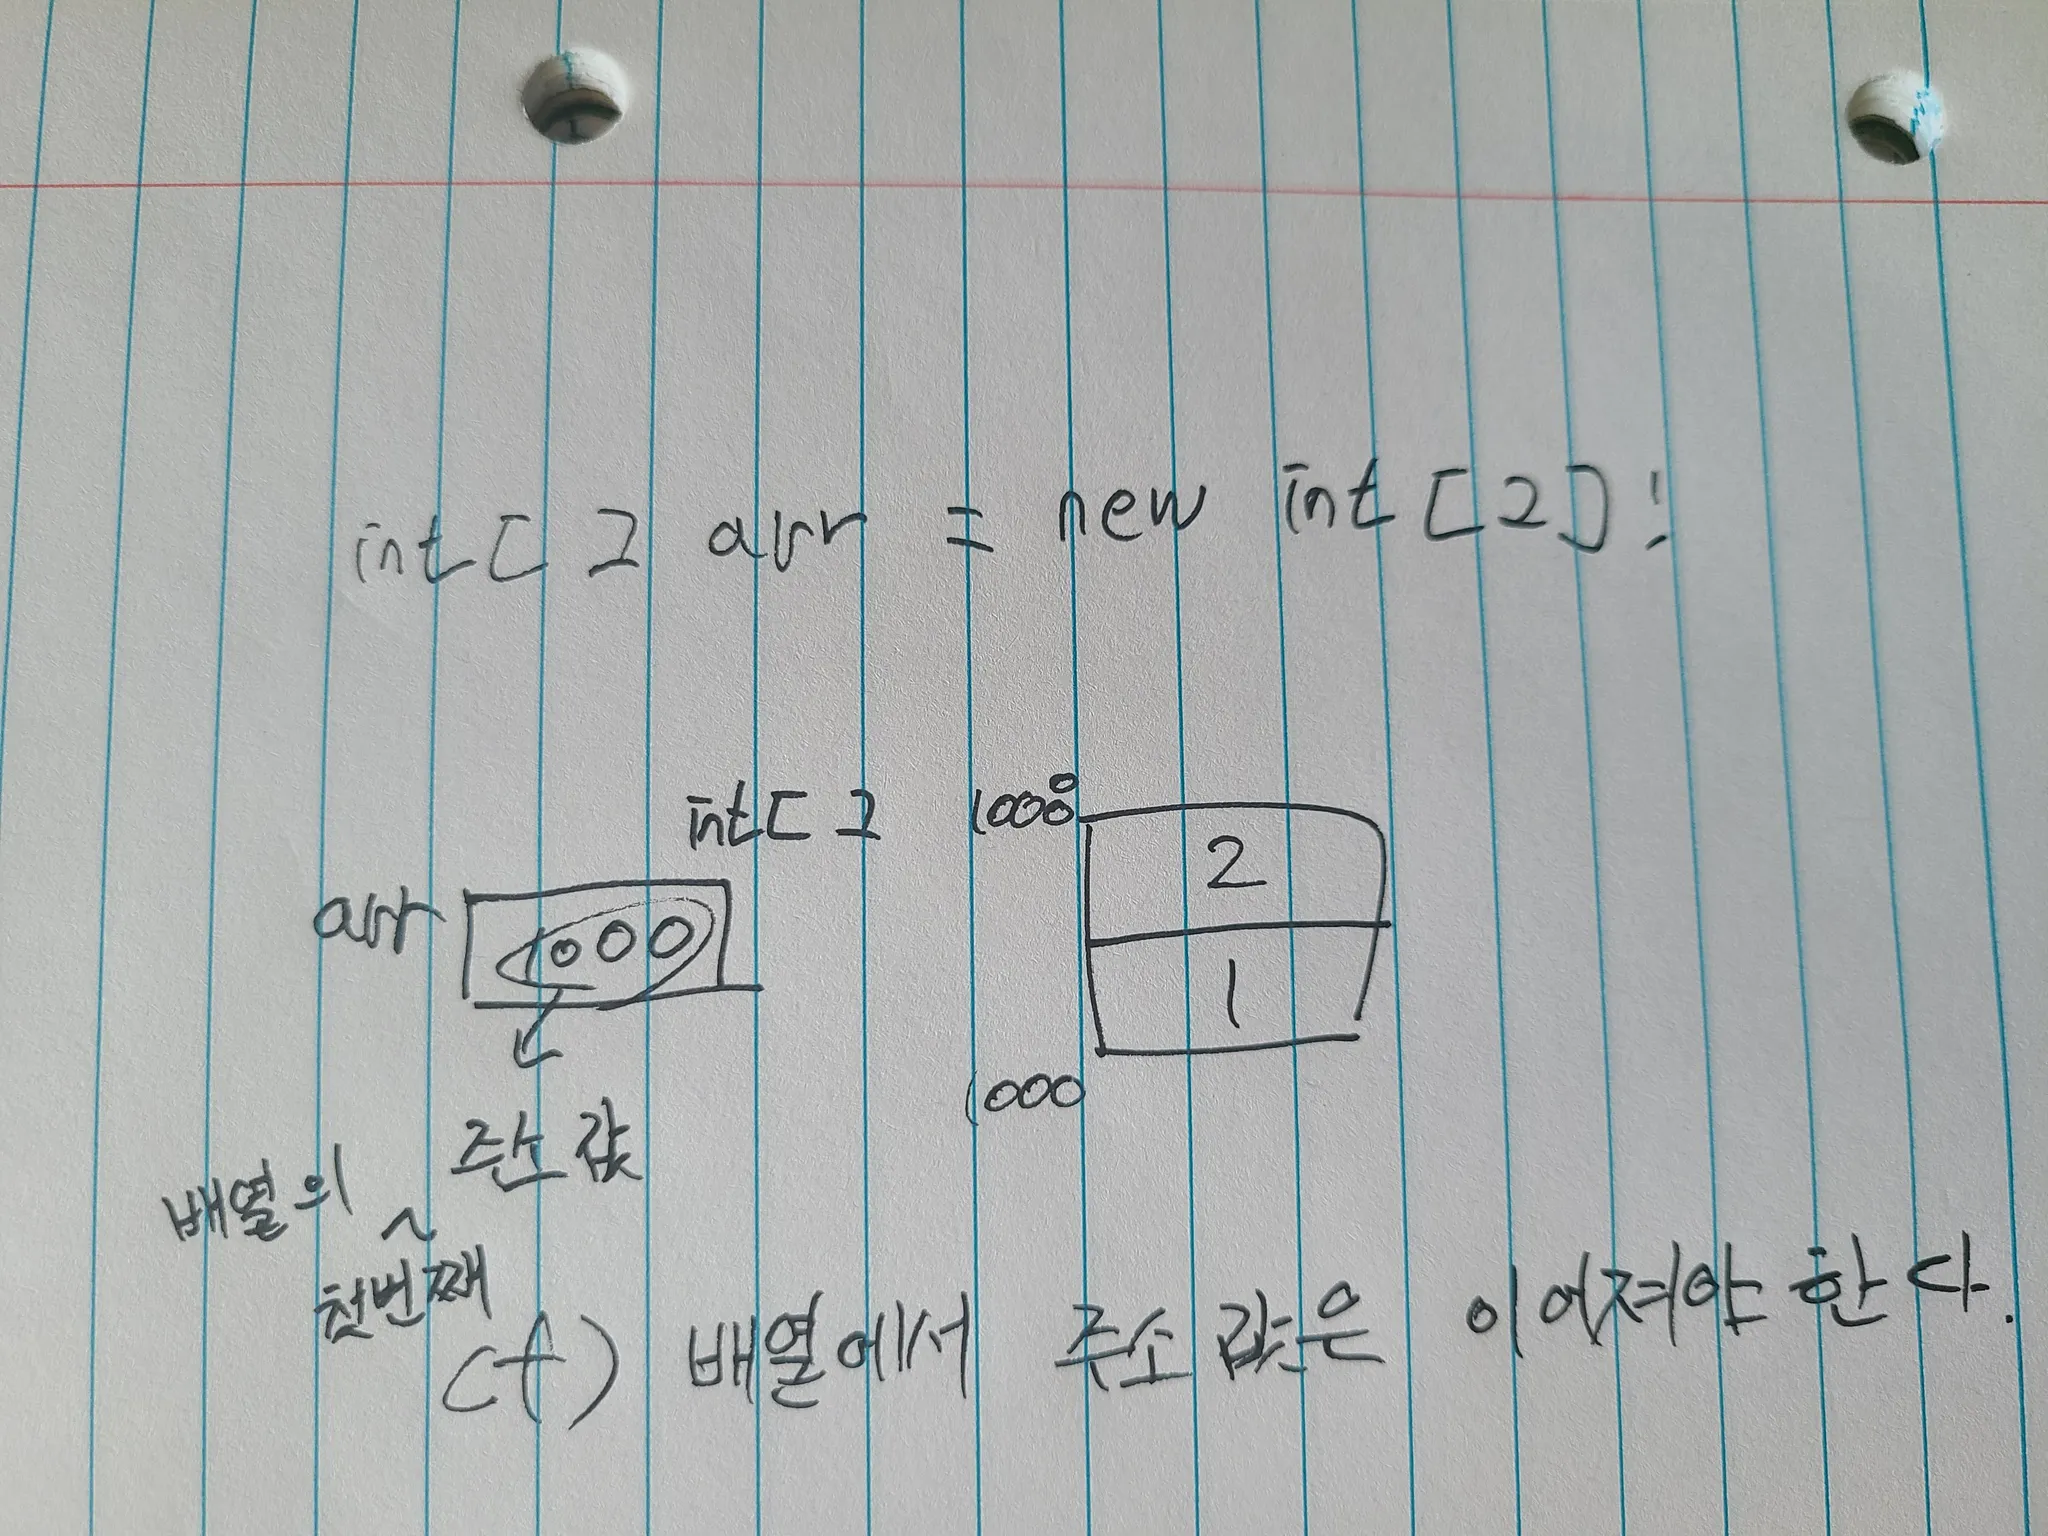 int[] arr = new int[2];
int[] 1008
2
arr 1000
1
1000
주소 값
배열의
첫번째
cf) 배열에서 주소 값은 이어져야 한다.